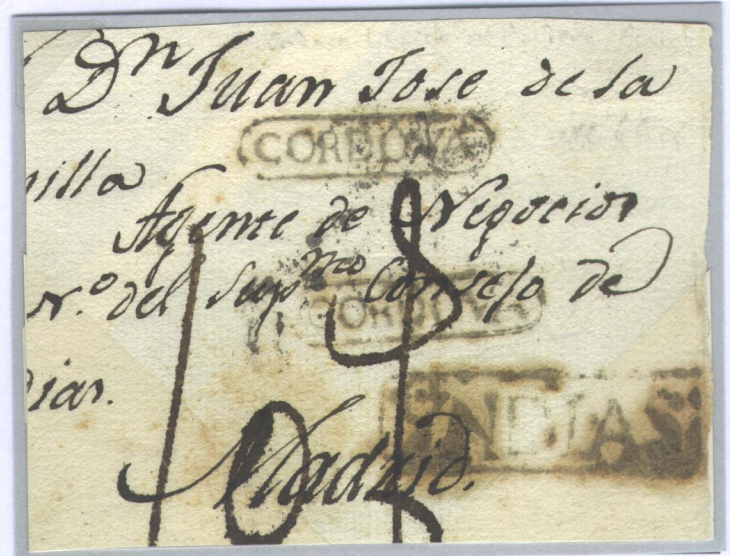 Dn Juan Jose de la
CORDOVA
illa
Agente de Negocios
N.º del Supmo Consejo de
CORDOVA
dias.
INDIAS
Madrid.